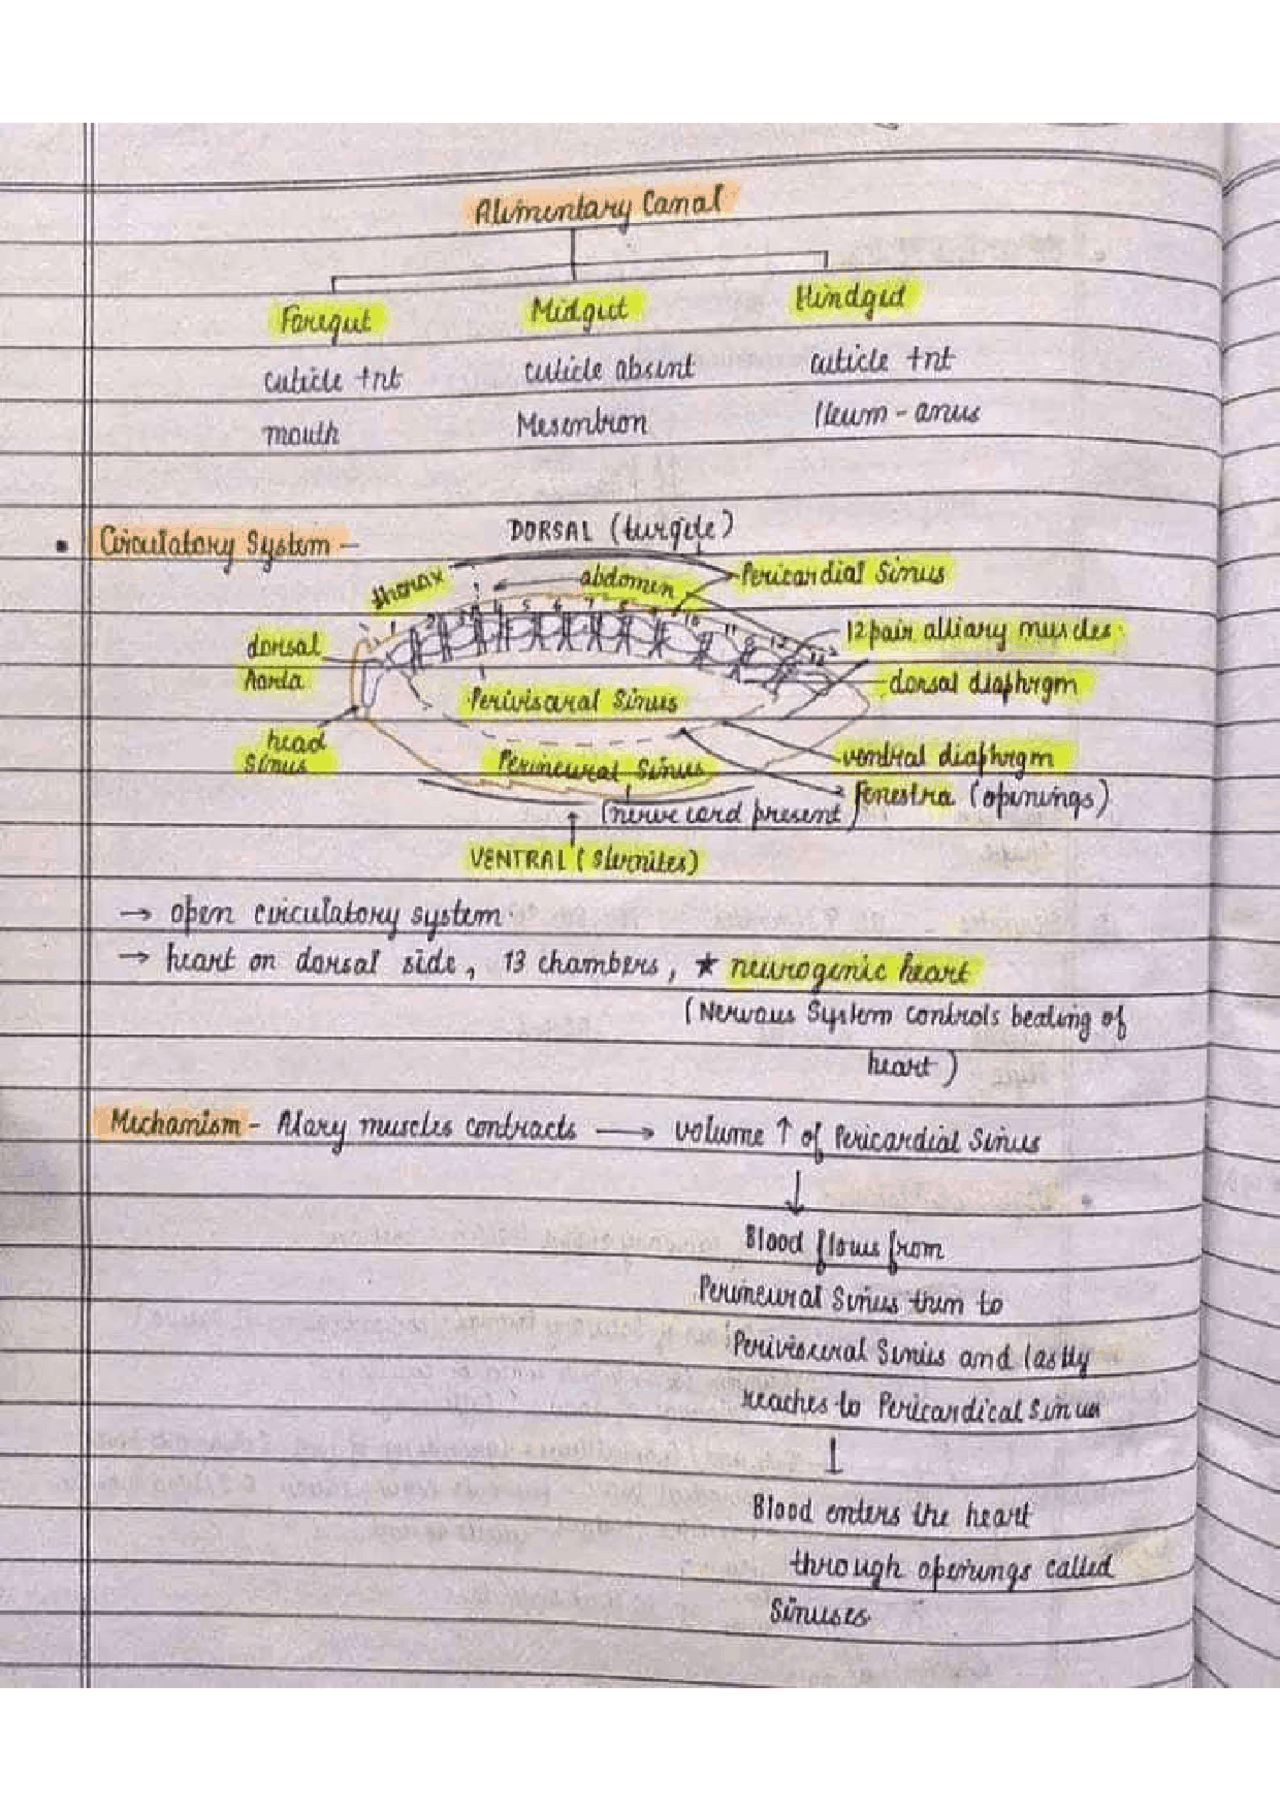 Alimentary Canal
Foregut Midgut Hindgut
cuticle +nt cuticle absent cuticle +nt
mouth Mesentron Ileum - anus
• Circulatory System -
DORSAL (turgite)
thorax abdomen Pericardial Sinus
1 2 3 4 5 6 7 8 9 10 11 12 13
12 pair alliary muscles
dorsal Aorta
dorsal diaphrgm
Perivisaral Sinus
head Sinus
ventral diaphrgm
Perineural Sinus
fenestra (openings)
(nerve cord present)
VENTRAL (Sternites)
→ open circulatory system.
→ heart on dorsal side, 13 chambers, ★ neurogenic heart
(Nervous System controls beating of
heart)
Mechanism - Alary muscles contracts → volume ↑ of Pericardial Sinus
↓
Blood flows from
Perineural Sinus then to
Perivisceral Sinus and lastly
reaches to Pericardical Sinus
↓
Blood enters the heart
through openings called
Sinuses